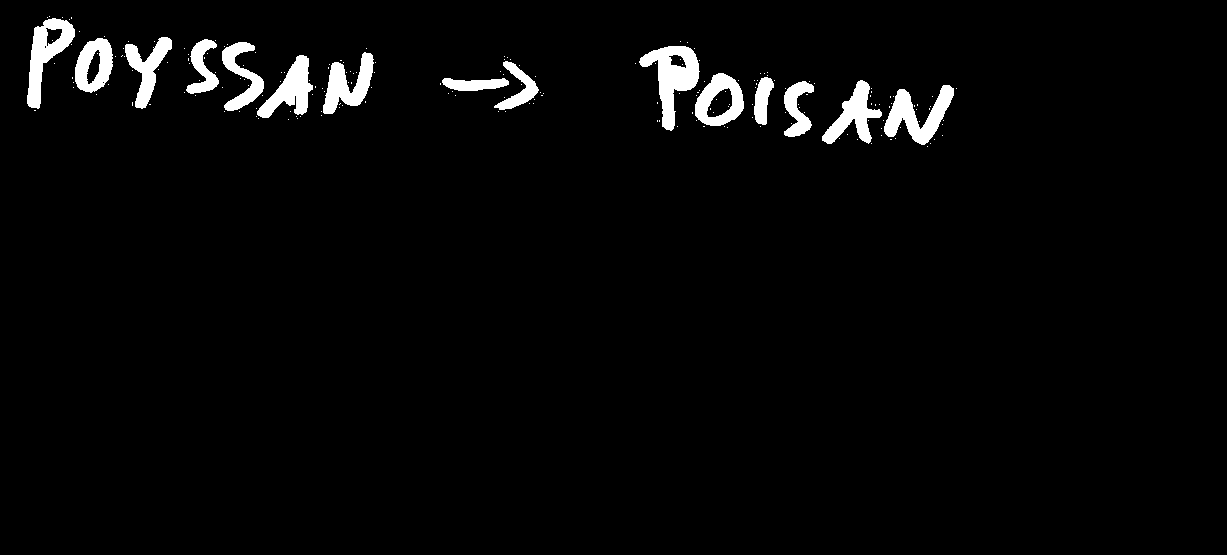 POYSSAN → POISAN